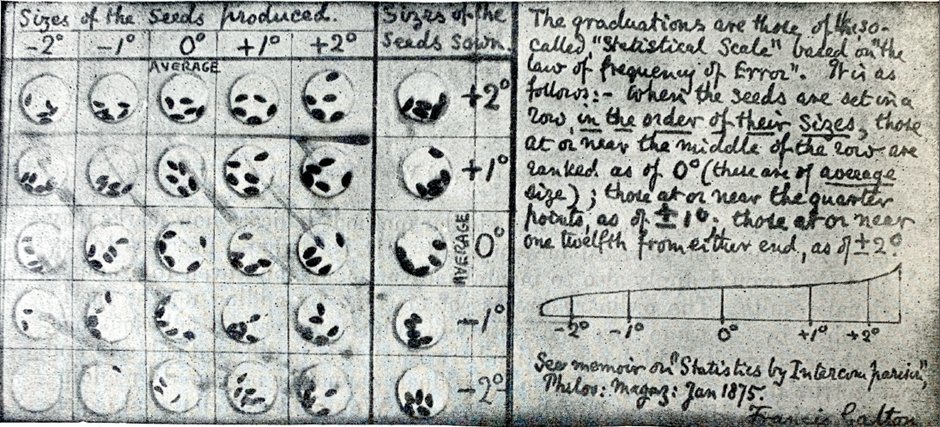 Sizes of the Seeds produced.
-2° -1° 0° +1° +2°
AVERAGE
Sizes of the
Seeds Sown.
+2°
+1°
AVERAGE 0°
-1°
-2°
The graduations are those of the so-
called "Statistical Scale" based on "the
law of frequency of Error". It is as
follows:- When the seeds are set in a
row in the order of their Sizes, those
at or near the middle of the row are
ranked as of 0° (these are of average
size); those at or near the quarter
points, as of ±1°. those at or near
one twelfth from either end, as of ±2°.
-2° -1° 0° +1° +2°
See memoir on "Statistics by Intercomparison",
Philos: Magaz: Jan 1875.
Francis Galton